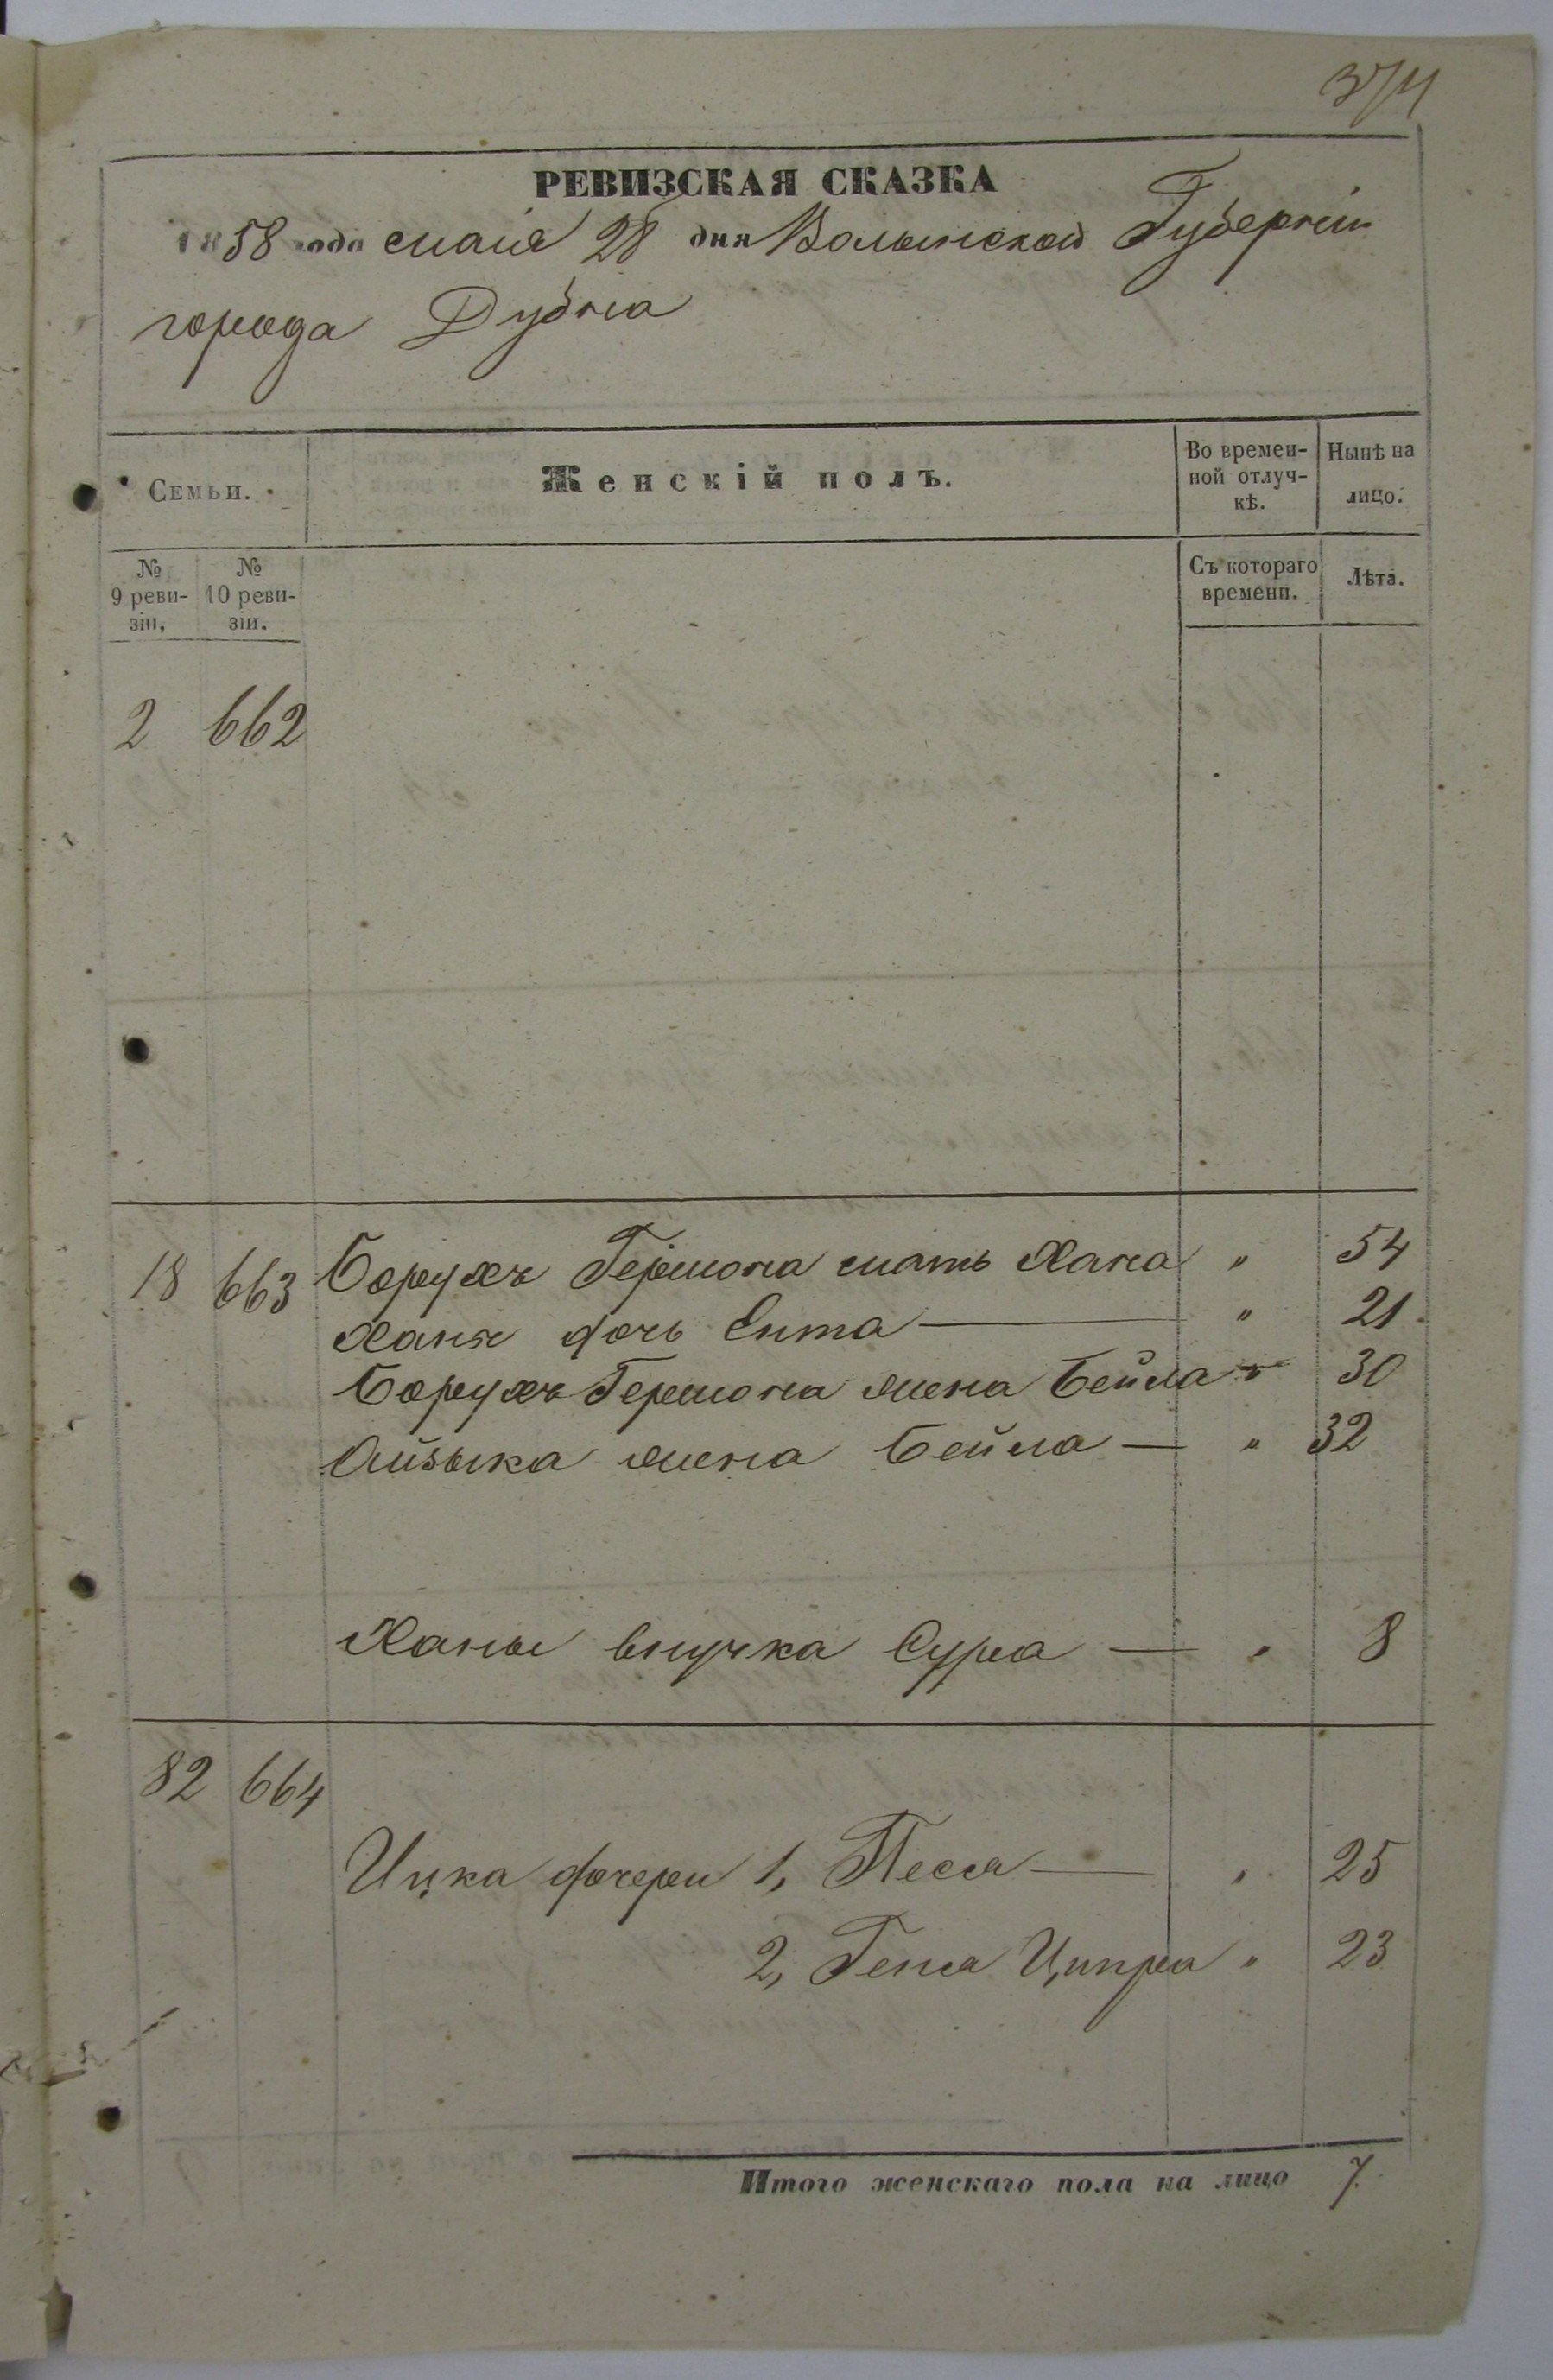 374
РЕВИЗСКАЯ СКАЗКА
1858 года маія 28 дня Волынской Губерніи
города Дубна
Семьи.
Женскій полъ.
Во времен-
ной отлуч-
кѣ.
Нынѣ на
лицо.
№
9 реви-
зіи.
№
10 реви-
зіи.
Съ котораго
времени.
Лѣта.
2 662
18 663 Борухъ Гершона мать Хана " 54
Ханы дочь Ента — " 21
Борухъ Гершона жена Бейла " 30
Айзыка жена Бейла — " 32
Ханы внучка Сура — " 8
82 664
Ицка дочери 1, Песя — " 25
2, Геня Ципра " 23
Итого женскаго пола на лицо 7.